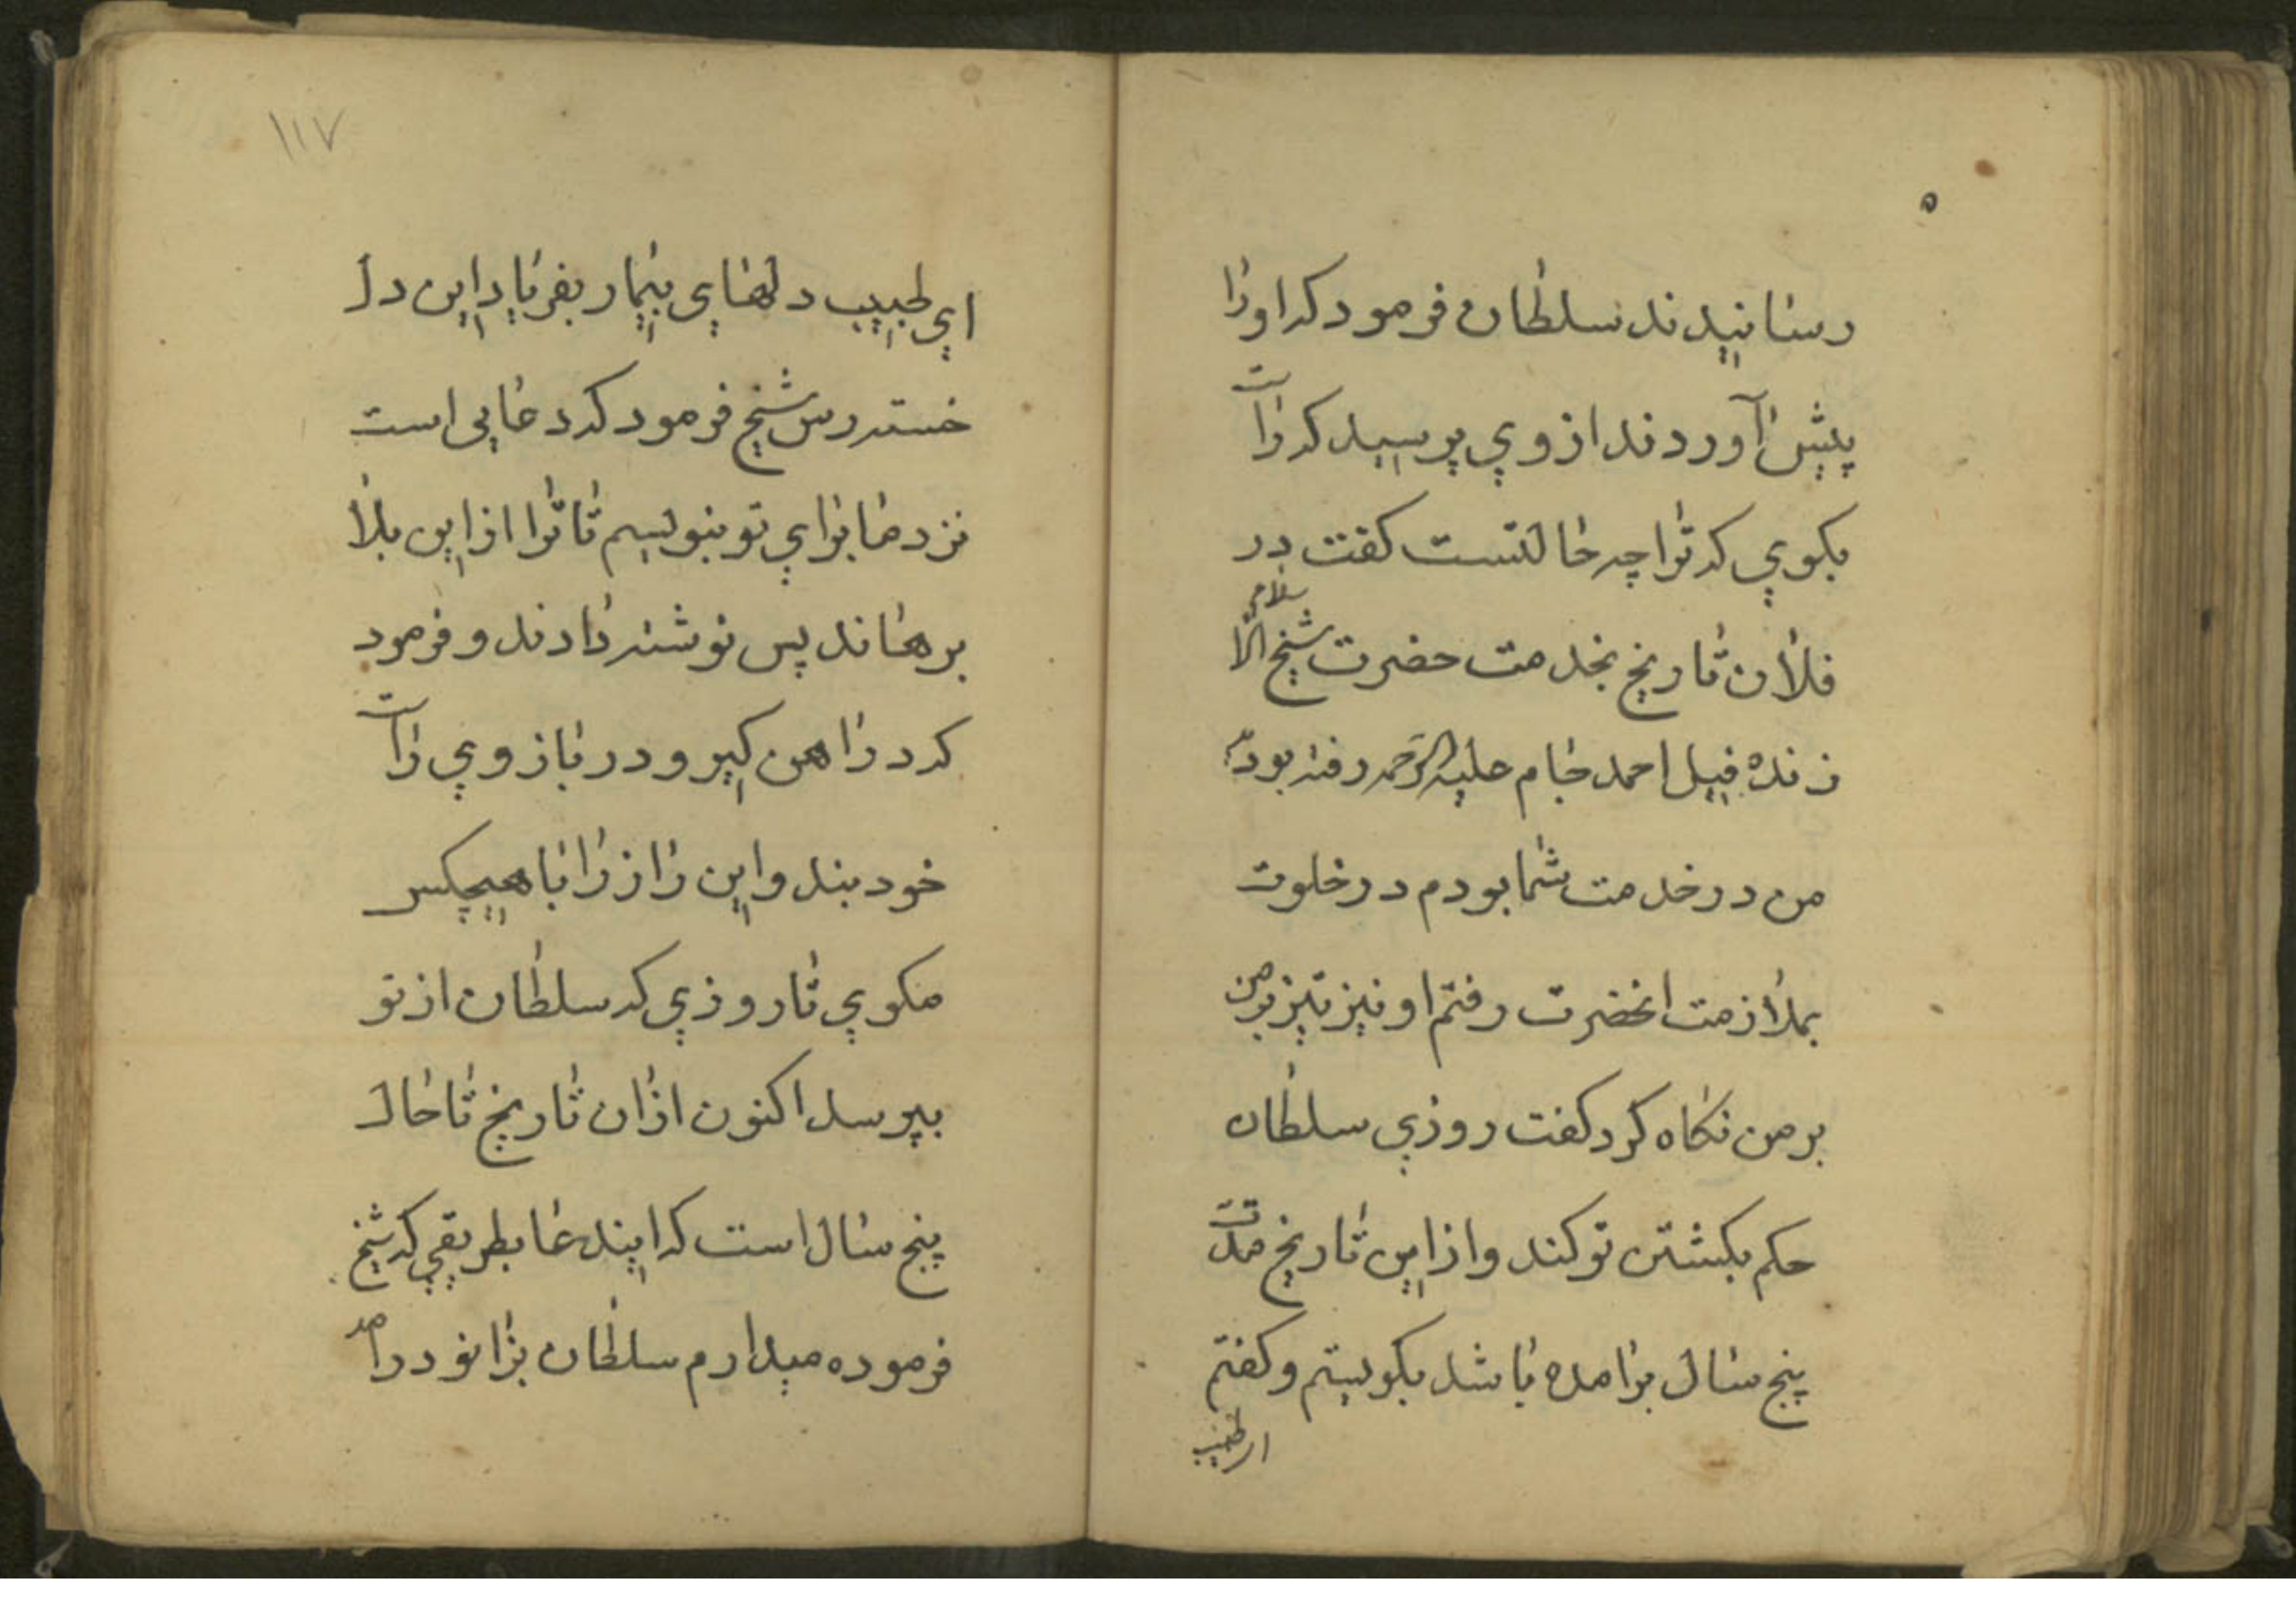 رسانیدند سلطان فرمود که او را
پیش آوردند از وي پرسید که راست
بکوي که ترا چه حالتست کفت در
فلان تاریخ بخدمت حضرت شیخ الاسلام
زنده فیل احمد جام علیه الرحمه رفته بودم
من در خدمت شما بودم در خلوت
بملازمت انحضرت رفتم او نیز تیز بر من
بر من نکاه کرد کفت روزي سلطان
حکم بکشتن تو کند و از این تاریخ مدت
پنج سال برامده باشد بکریستم و کفتم
اي طبیب
۱۱۷
اي طبیب دلهاي بیمار بفریاد این دل
خسته رس شیخ فرمود که دعایی است
نزد ما براي تو بنویسیم تا ترا از این بلا
برهاند پس نوشته دادند و فرمود
که در اهن کیر و در بازوي راست
خود بند و این راز را با هیچکس
مکوي تا روزي که سلطان از تو
بپرسد اکنون از ان تاریخ تا حال
پنج سال است که ایندعا بطریقي که شیخ
فرموده میدارم سلطان بزانو درامد